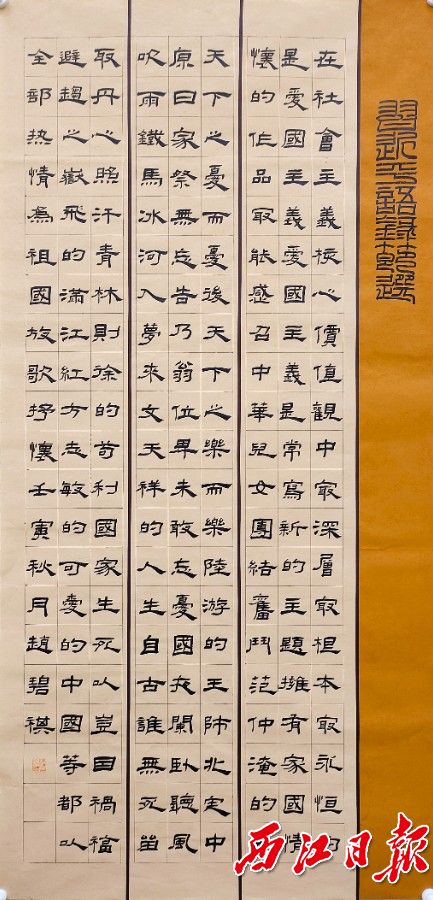 習近平語錄節選
在社會主義核心價值觀中最深層最根本最永恒的
是愛國主義愛國主義是常寫新的主題擁有家國情
懷的作品最能感召中華兒女團結奮鬥范仲淹的
天下之憂而憂後天下之樂而樂陸游的王師北定中
原日家祭無忘告乃翁位卑未敢忘憂國夜闌臥聽風
吹雨鐵馬冰河入夢來文天祥的人生自古誰無死留
取丹心照汗青林則徐的苟利國家生死以豈因禍福
避趨之嶽飛的滿江紅方志敏的可愛的中國等都以
全部热情為祖國放歌抒懷壬寅秋月趙碧祺
西江日報